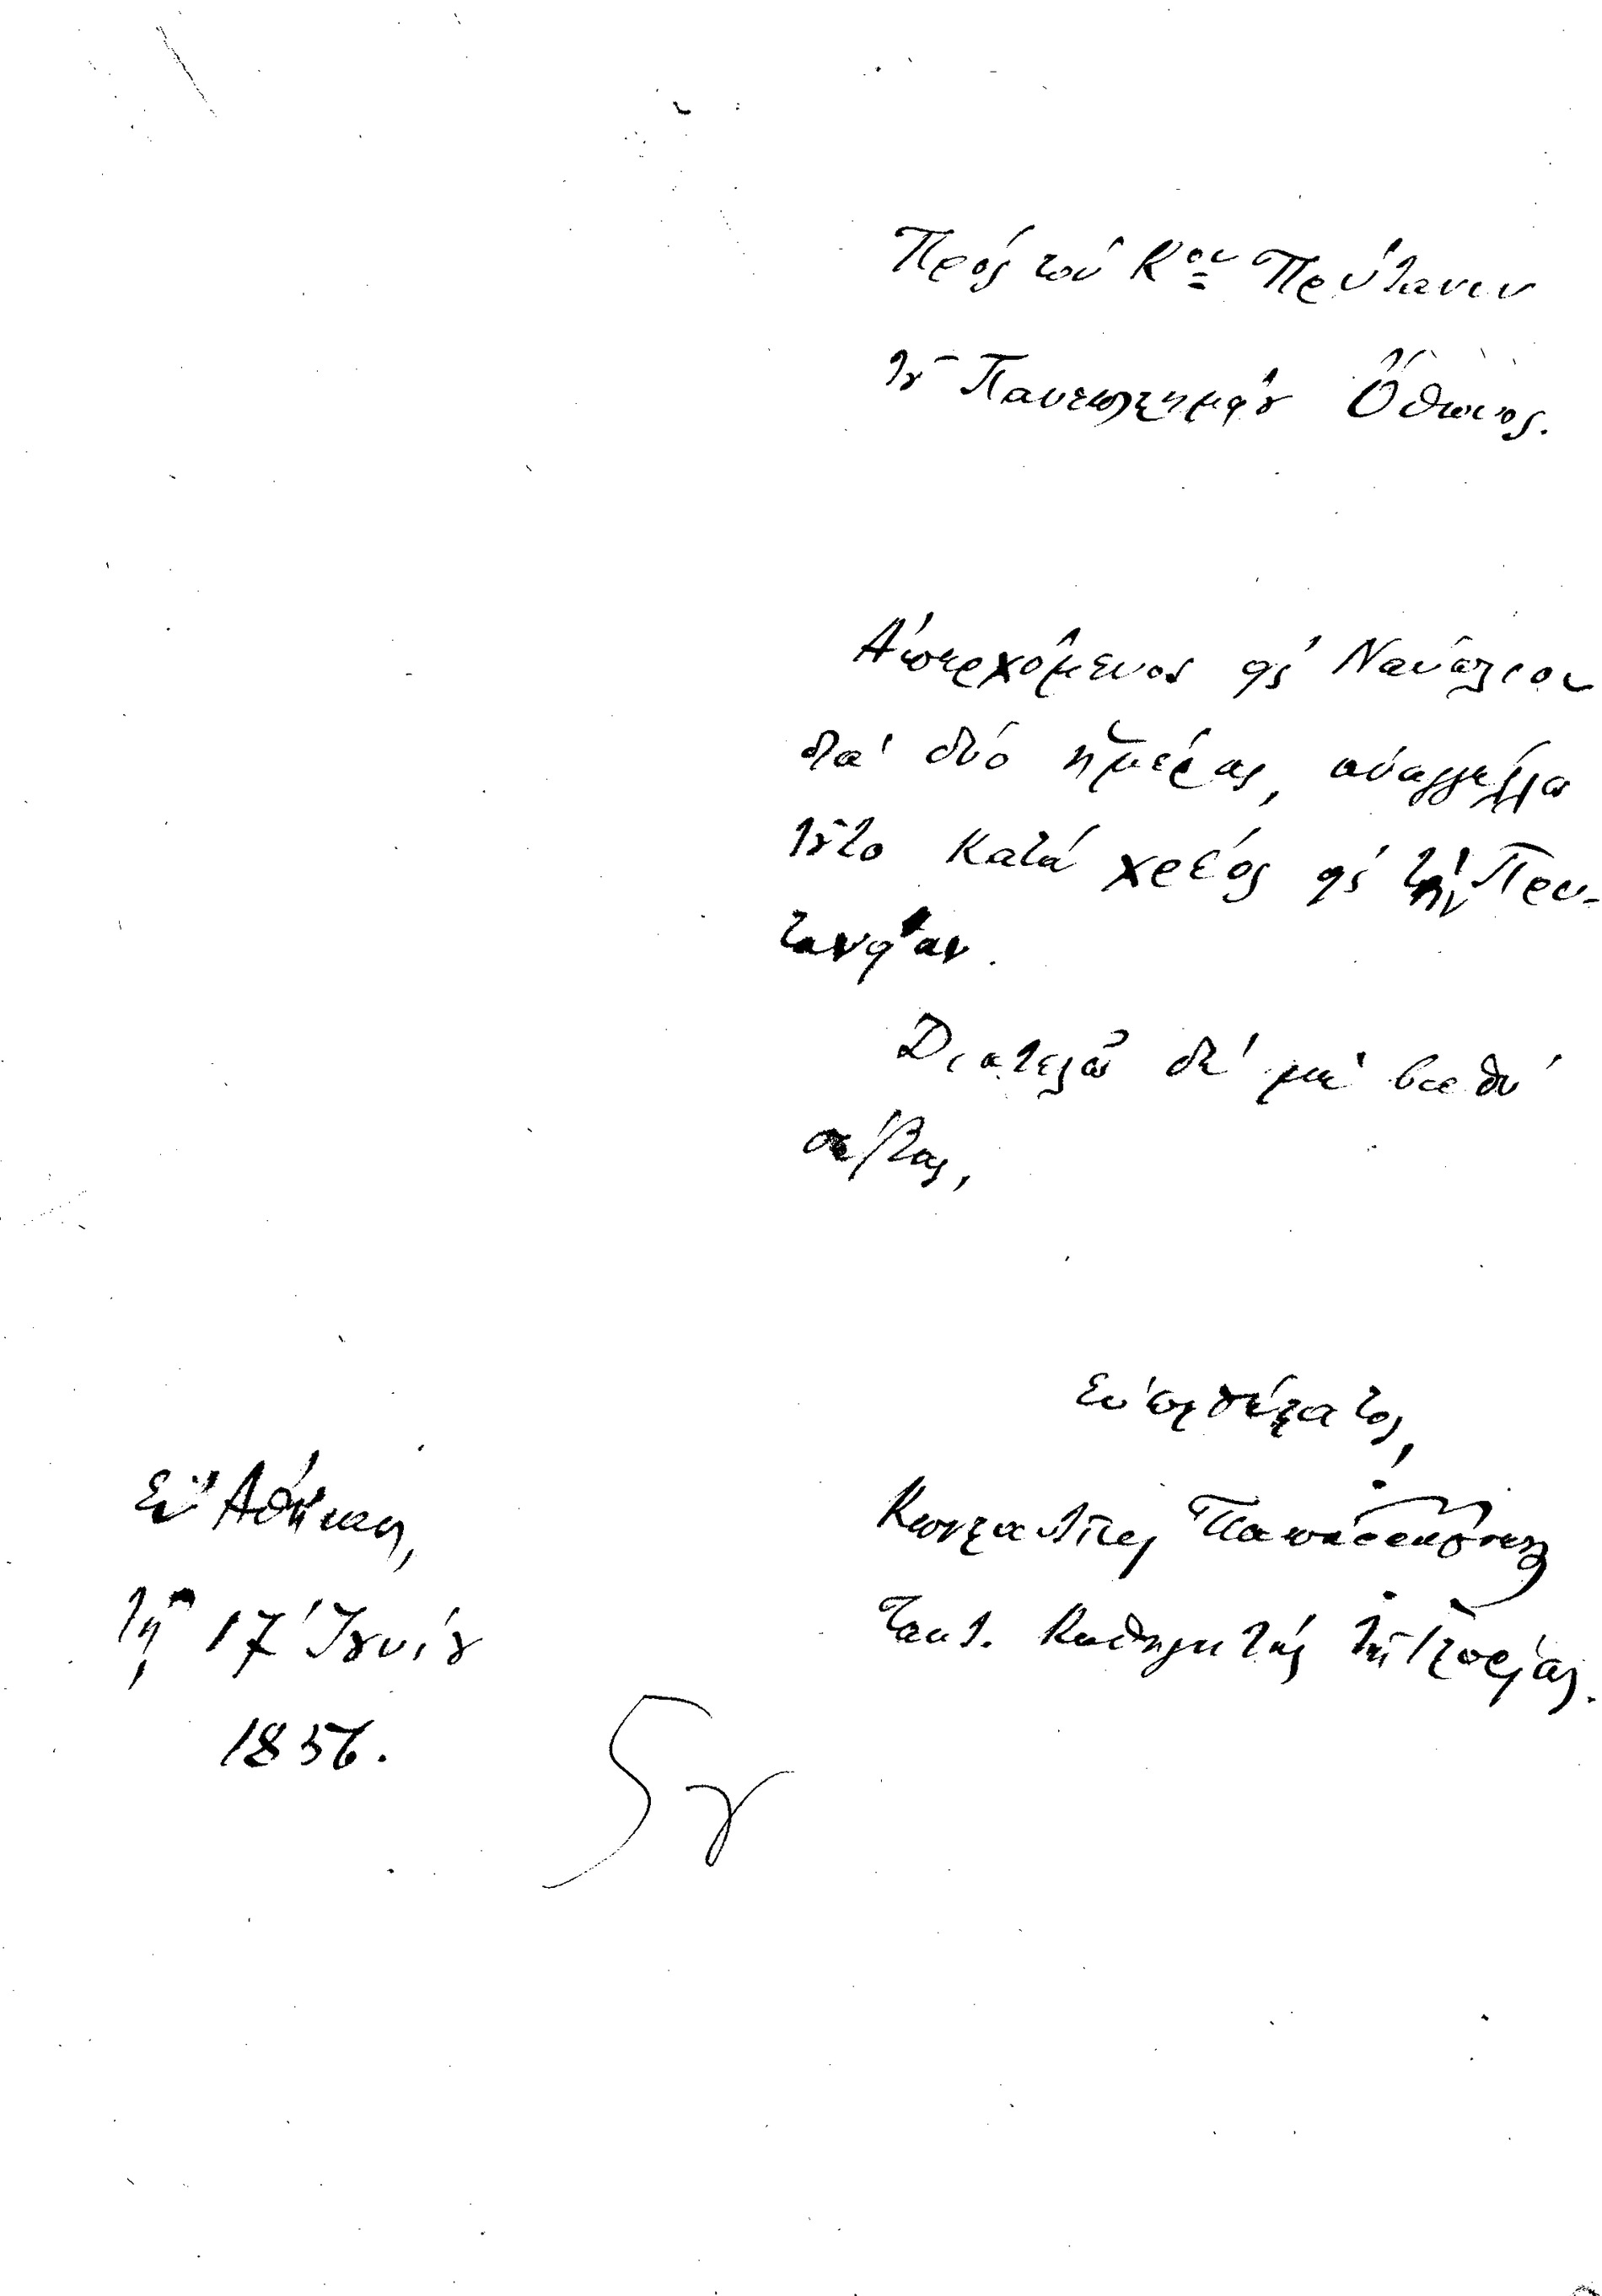 Πρός τόν Κον Πρύτανιν
τοῦ Πανεπιστημείου Ὄθωνος.
Ἀπερχόμενος εἰς Ναύπλιον
διά δύο ἡμέρας, ἀναγγέλλω
τοῦτο κατά χρέος εἰς τήν Πρυ-
τανείαν.
Διατελῶ δέ μέ βαθύ
σέβας,
Εὐπειθέστατος,
Κωνσταντῖνος Παπαρρηγόπουλος
Τακτ. Καθηγητής τῆς Ἱστορίας.
Ἐν Ἀθήναις,
τῇ 17 Ἰουνίου
1856.